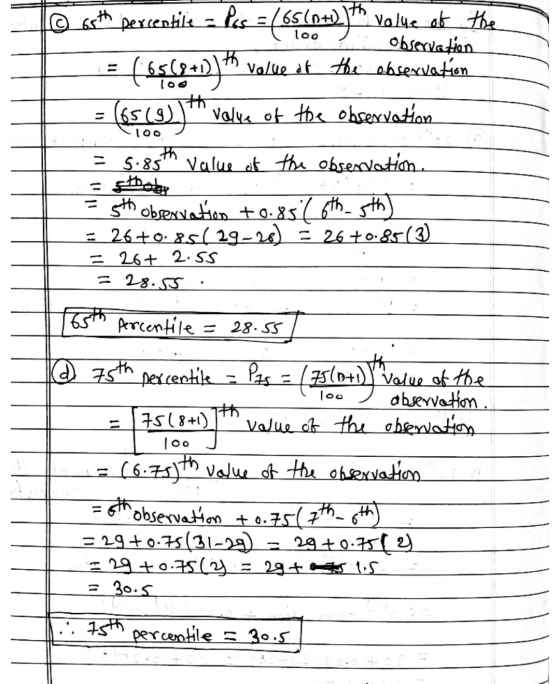 ⓒ 65th percentile = P65 = (65(n+1)/100)th value of the observation
= (65(8+1)/100)th value of the observation
= (65(9)/100)th value of the observation
= 5.85th value of the observation.
=
= 5th observation + 0.85 (6th - 5th)
= 26+0.85(29-26) = 26+0.85(3)
= 26+ 2.55
= 28.55 .
65th Percentile = 28.55
ⓓ 75th percentile = P75 = (75(n+1)/100)th value of the observation.
= [75(8+1)/100]th value of the observation
= (6.75)th value of the observation
= 6th observation + 0.75(7th - 6th)
= 29+0.75(31-29) = 29+0.75(2)
= 29+0.75(2) = 29+ 1.5
= 30.5
∴ 75th percentile = 30.5